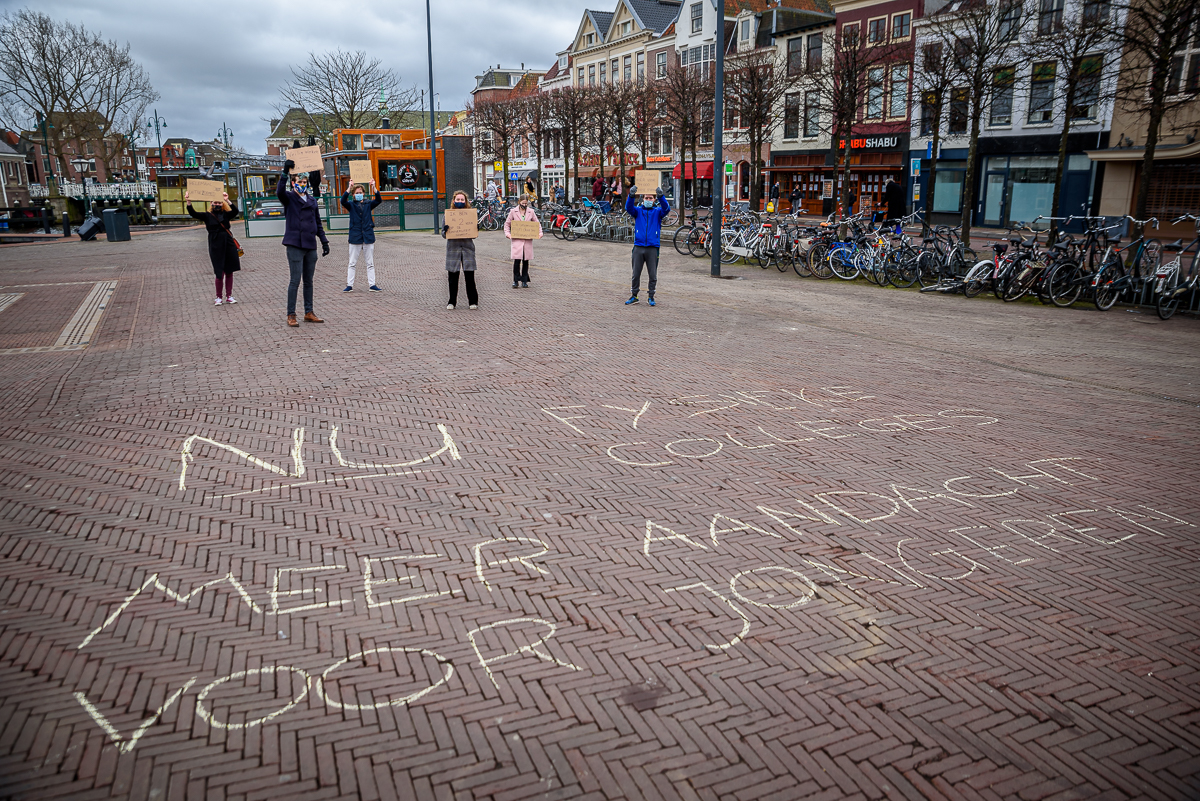 SHABUSHABU
NU FYSIEKE
COLLEGES
MEER AANDACHT
VOOR JONGEREN